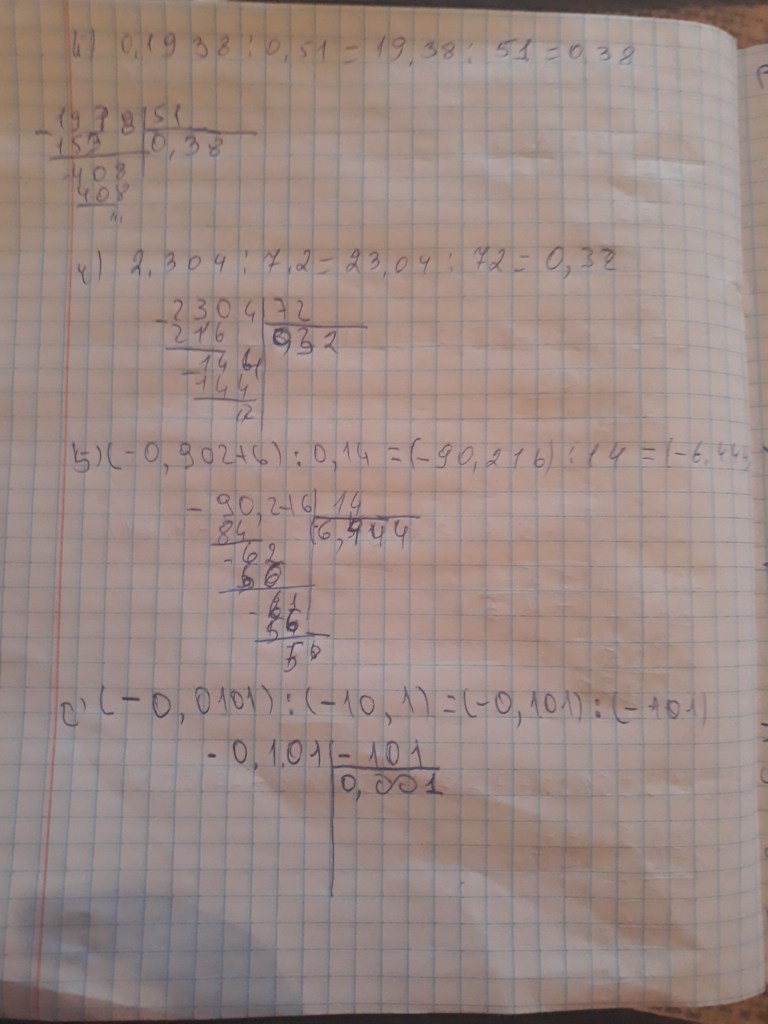 b) 0,1938 : 0,51 = 19,38 : 51 = 0,38
- 1938 | 51
153 | 0,38
- 408
408
2,304 : 7,2 = 23,04 : 72 = 0,32
- 2304 | 72
216 | 032
- 144
144
(-0,90216) : 0,14 = (-90,216) : 14 = (-6,444
- 90,216 | 14
84 | 6,444
- 62
56
- 61
56
56
c) (-0,0101) : (-10,1) = (-0,101) : (-101)
- 0,101 | - 101
0,001